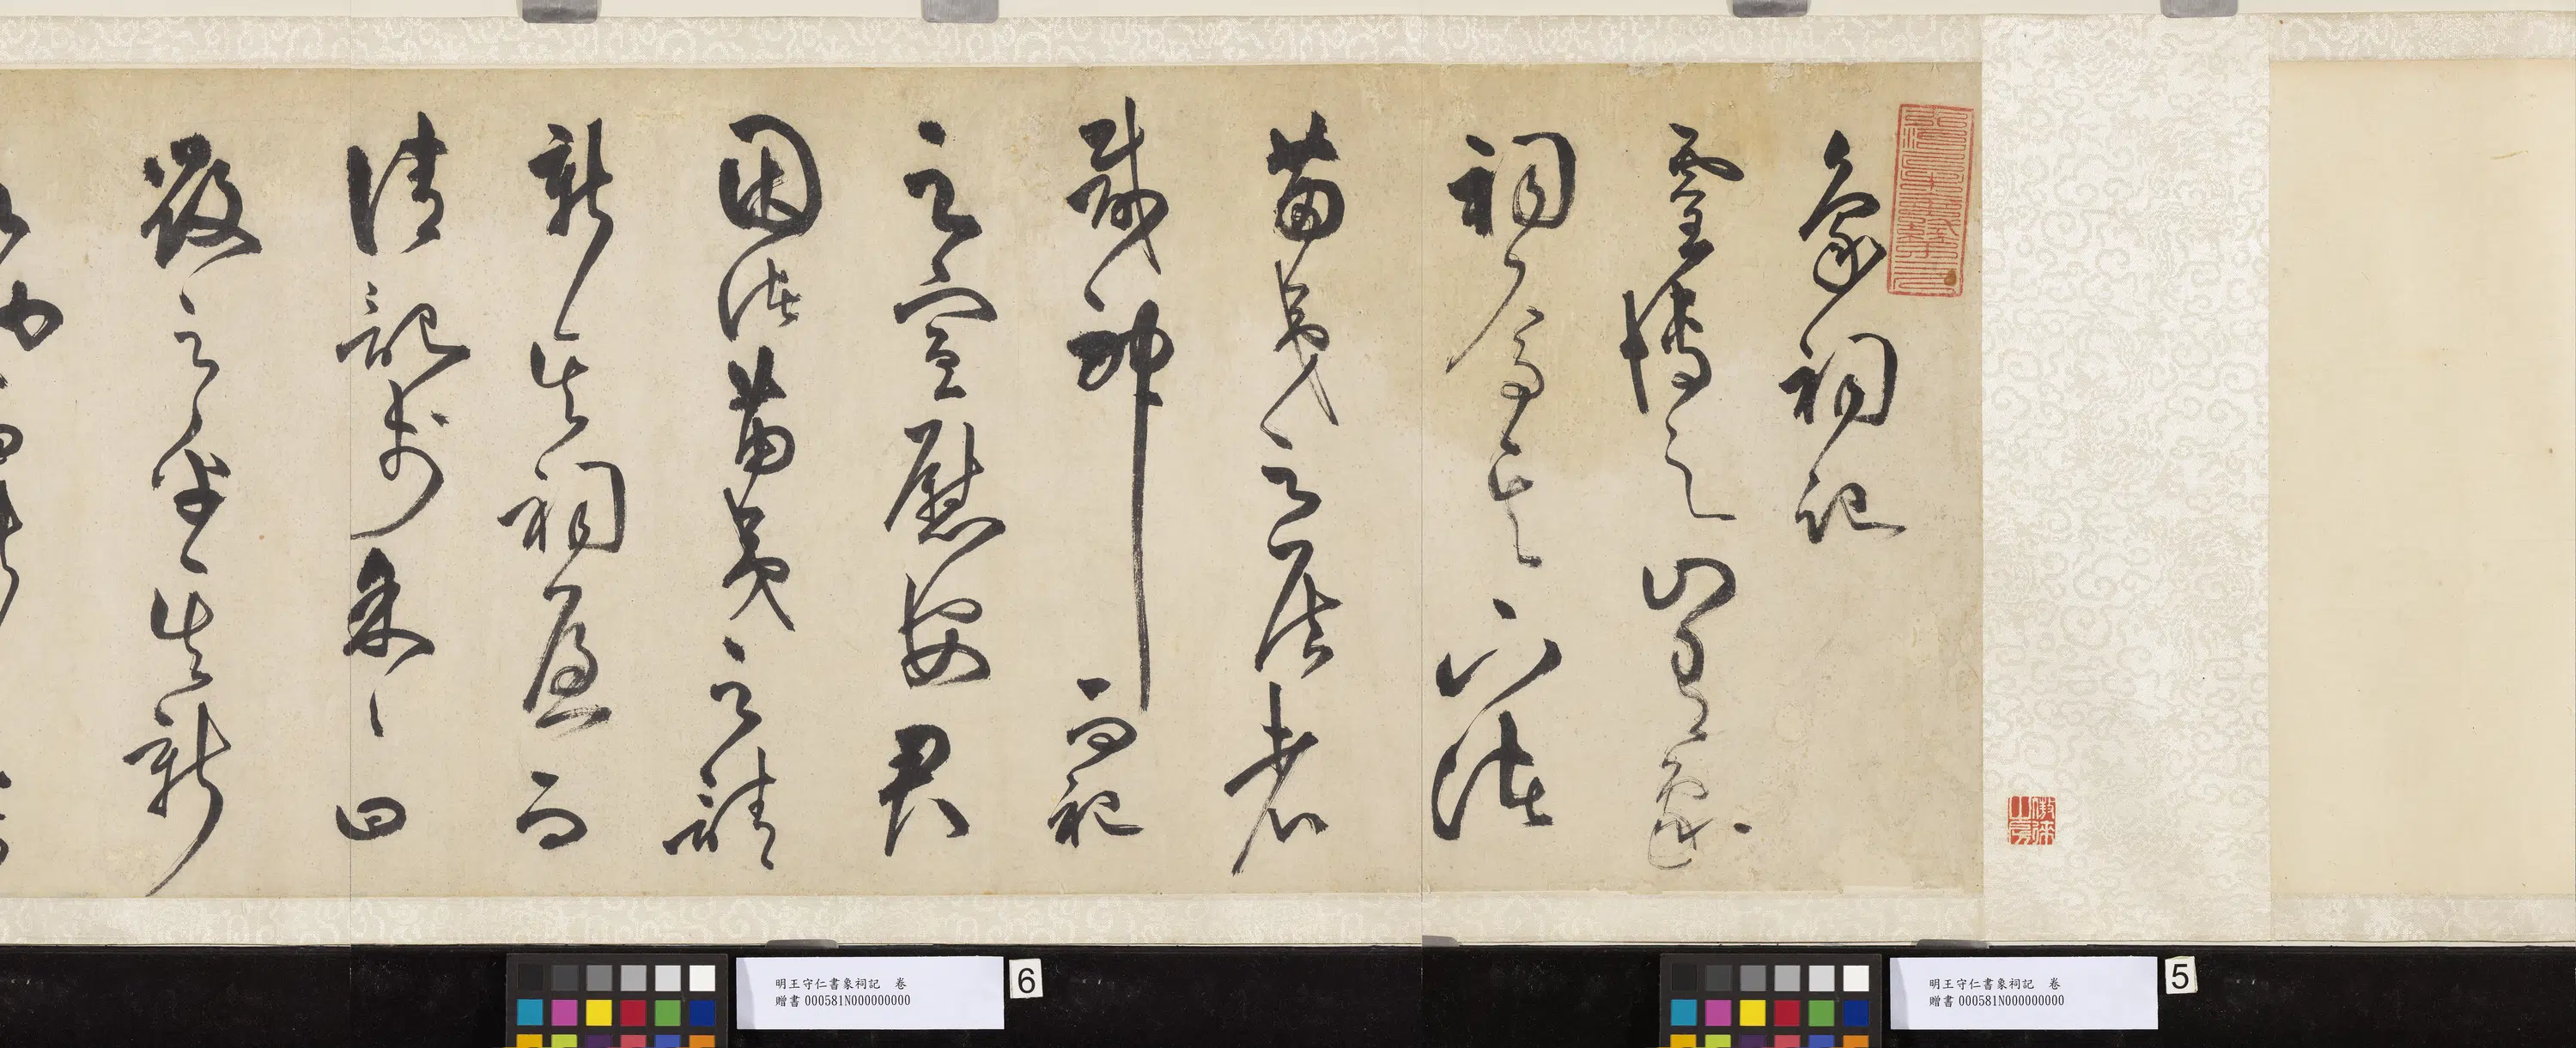 象祠記
靈博之山有象
祠焉其下諸
苗夷之居者
咸神而祀
之宣慰安君
因諸苗夷之請
新其祠屋而
請記於余〻曰
毀之乎其新
明王守仁書象祠記 卷
贈書 000581N000000000
5
明王守仁書象祠記 卷
贈書 000581N000000000
6